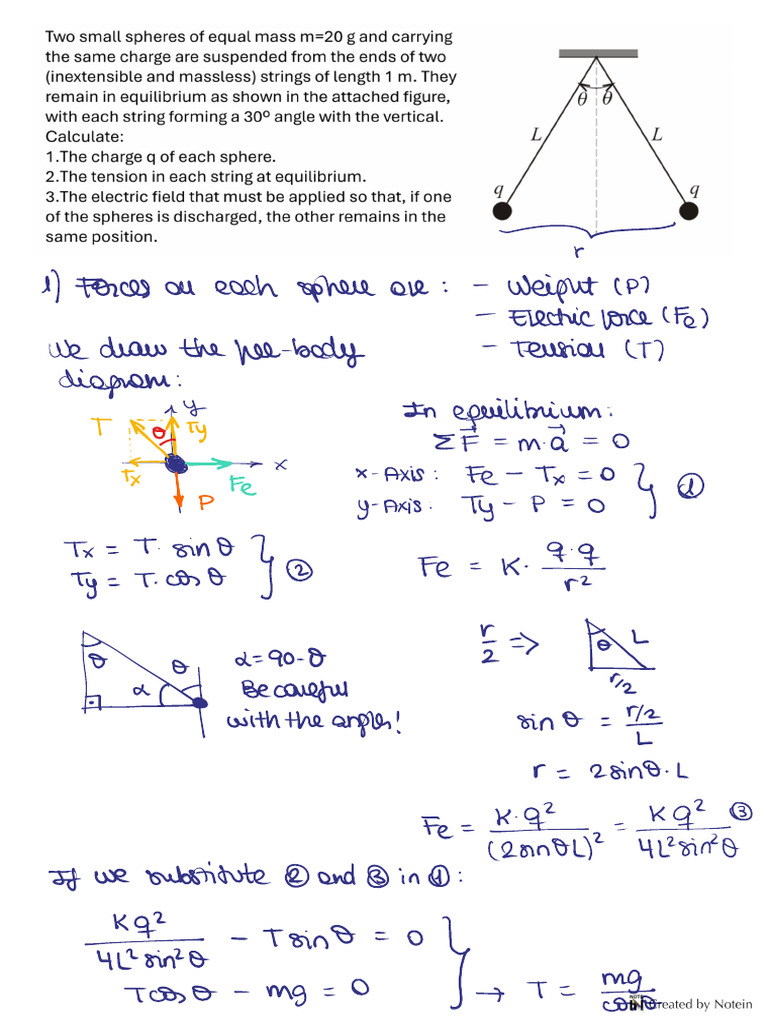 Two small spheres of equal mass m=20 g and carrying
the same charge are suspended from the ends of two
(inextensible and massless) strings of length 1 m. They
remain in equilibrium as shown in the attached figure,
with each string forming a 30º angle with the vertical.
Calculate:
1.The charge q of each sphere.
2.The tension in each string at equilibrium.
3.The electric field that must be applied so that, if one
of the spheres is discharged, the other remains in the
same position.
θ θ
L L
q q
r
1) Forces on each sphere are : - Weight (P)
- Electric force (Fe)
- Tension (T)
We draw the free-body
diagram:
T θ Ty y
Tx Fe x
P
In equilibrium:
ΣF⃗ = m·a⃗ = 0
x-Axis: Fe - Tx = 0
y-Axis: Ty - P = 0 } ①
Tx = T· sin θ
Ty = T· cos θ } ②
Fe = K· q·q / r²
θ θ α
α = 90-θ
Be careful
with the angles!
r/2 => θ L r/2
sin θ = (r/2)/L
r = 2 sin θ · L
Fe = K·q² / (2 sin θ L)² = K q² / 4L² sin² θ ③
If we substitute ② and ③ in ①:
K q² / 4L² sin² θ - T sin θ = 0
T cos θ - mg = 0 } → T = mg / cos θ
Created by Notein